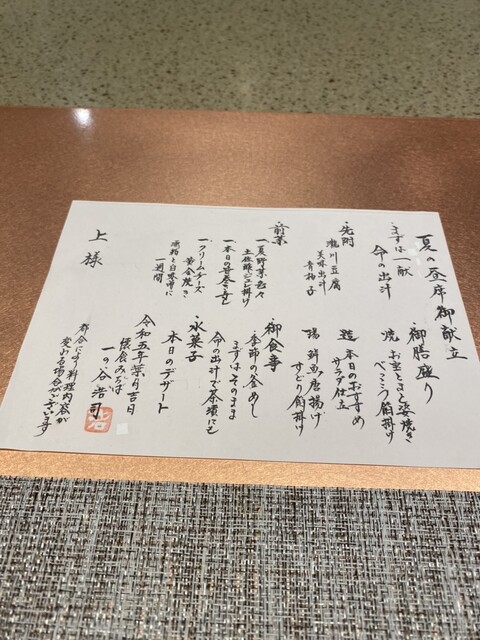 夏の昼席御献立
・まずは一献
命の出汁
・先附
瀧川豆腐
美味出汁
青柚子
・前菜
一、夏野菜色々
土佐酢ジュレ掛け
一、本日の茶会蒸し
一、クリームチーズ
黄金焼き
酒粕と白味噌に
一週間
上様
・御膳盛り
焼 お宝とまと姿焼き
べっこう餡掛け
造 本日のおすすめ
サラダ仕立
揚 鮮魚唐揚げ
すどり餡掛け
・御食事
季節の釜めし
まずはそのまま
命の出汁で茶漬にも
・氷菓子
本日のデザート
令和五年葉月吉日
懐食みちば
一の谷浩司
都合により料理内容が
変わる場合がございます